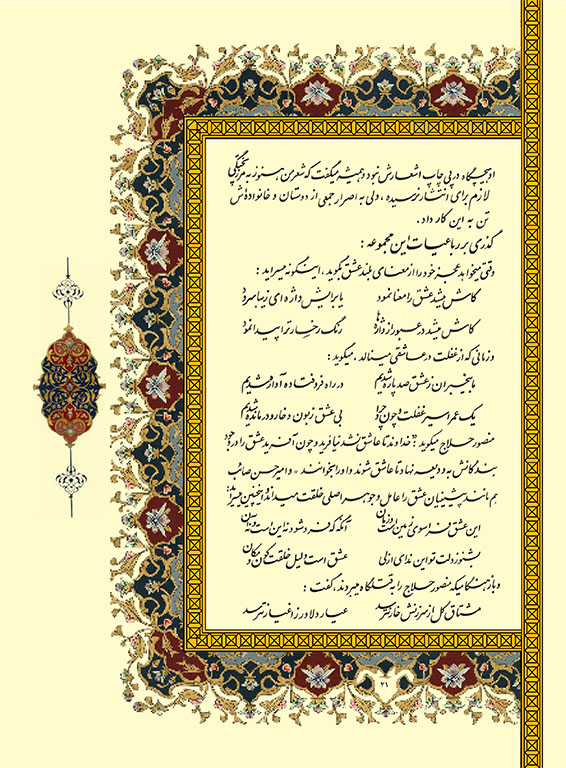 او هیچگاه در پی چاپ اشعارش نبود و همیشه میگفت که شعر من هنوز به مرز پختگی
لازم برای انتشار نرسیده ، ولی به اصرار جمعی از دوستان و خانواده‌اش
تن به این کار داد .
گذری بر رباعیات این مجموعه :
وقتی میخواهد عجز خود را از معنای بلند عشق بگوید ، اینگونه میسراید :
کاش میشد عشق را معنا نمود    یا برایش واژه ای زیبا سرود
کاش میشد در عبور از واژه‌ها    رنگ رخسار تو را پیدا نمود
و زمانی که از غفلت در عاشقی مینالد ، میگوید :
با بیخبران ز عشق صد پاره شدیم    در راه فرو فتاده آواره شدیم
یک عمر اسیر غفلت و چون و چرا    بی عشق زبون و خار و درمانده شدیم
منصور حلاج میگوید : « خداوند تا عاشق نشد نیافرید و چون آفرید عشق را در وجود
بندگانش به ودیعه نهاد تا عاشق شوند و او را بخوانند » و امیرحسن صائب
هم مانند پیشینیان عشق را عامل و جوهر اصلی خلقت میداند و اینچنین میسراید :
این عشق فراسوی زمین است و زمان    آنگه که فرو شود نه این است و نه آن
بشنو ز دلت تو این ندای ازلی    عشق است دلیل خلقت کون و مکان
و باز هنگامیکه منصور حلاج را به قتلگاه میبردند ، گفت :
مشتاق گل از سرزنش خار نترسد    عیار دلاور ز اغیار نترسد
۲۱